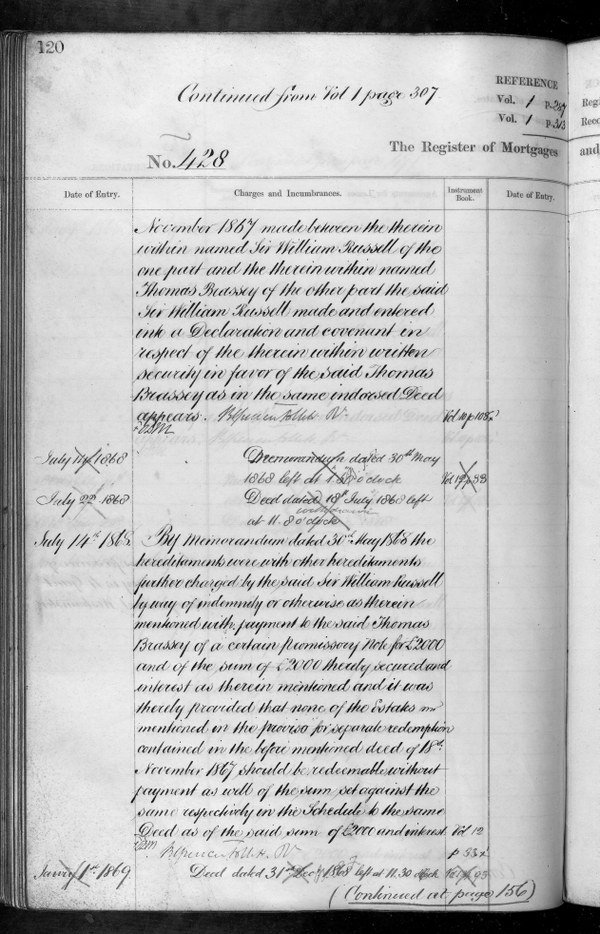 120
Continued from Vol 1 page 307
REFERENCE
Vol. 1 p.
Vol. 1 p.313
No. 428
The Register of Mortgages
and
Date of Entry.
Charges and Incumbrances.
Instrument
Book.
Date of Entry.
November 1867 made between the therein
within named Sir William Russell of the
one part and the therein within named
Thomas Brassey of the other part the said
Sir William Russell made and entered
into a Declaration and covenant in
respect of the therein within written
security in favor of the said Thomas
Brassey as in the same indorsed Deed
appears.
July 14th 1868 Memorandum dated 30th May
1868 left at o'clock Vol 12 p 33
July 22 1868 Deed dated 18th July 1868 left
withdrawn
at 11.8 o'clock
July 14th 1868 By Memorandum dated 30th May 1868 the
hereditaments were with other hereditaments
further charged by the said Sir William Russell
by way of indemnity or otherwise as therein
mentioned with payment to the said Thomas
Brassey of a certain Promissory Note for £2000
and of the sum of £2000 thereby secured and
interest as therein mentioned and it was
thereby provided that none of the Estates
mentioned in the proviso for separate redemption
contained in the before mentioned deed of 18th
November 1867 should be redeemable without
payment as well of the sum set against the
same respectively in the Schedule to the same
Deed as of the said sum of £2000 and interest Vol 12
p 33
1st 1869 Deed dated 31st Decr 1868 left at 11.30 o'clock
(Continued at page 156)